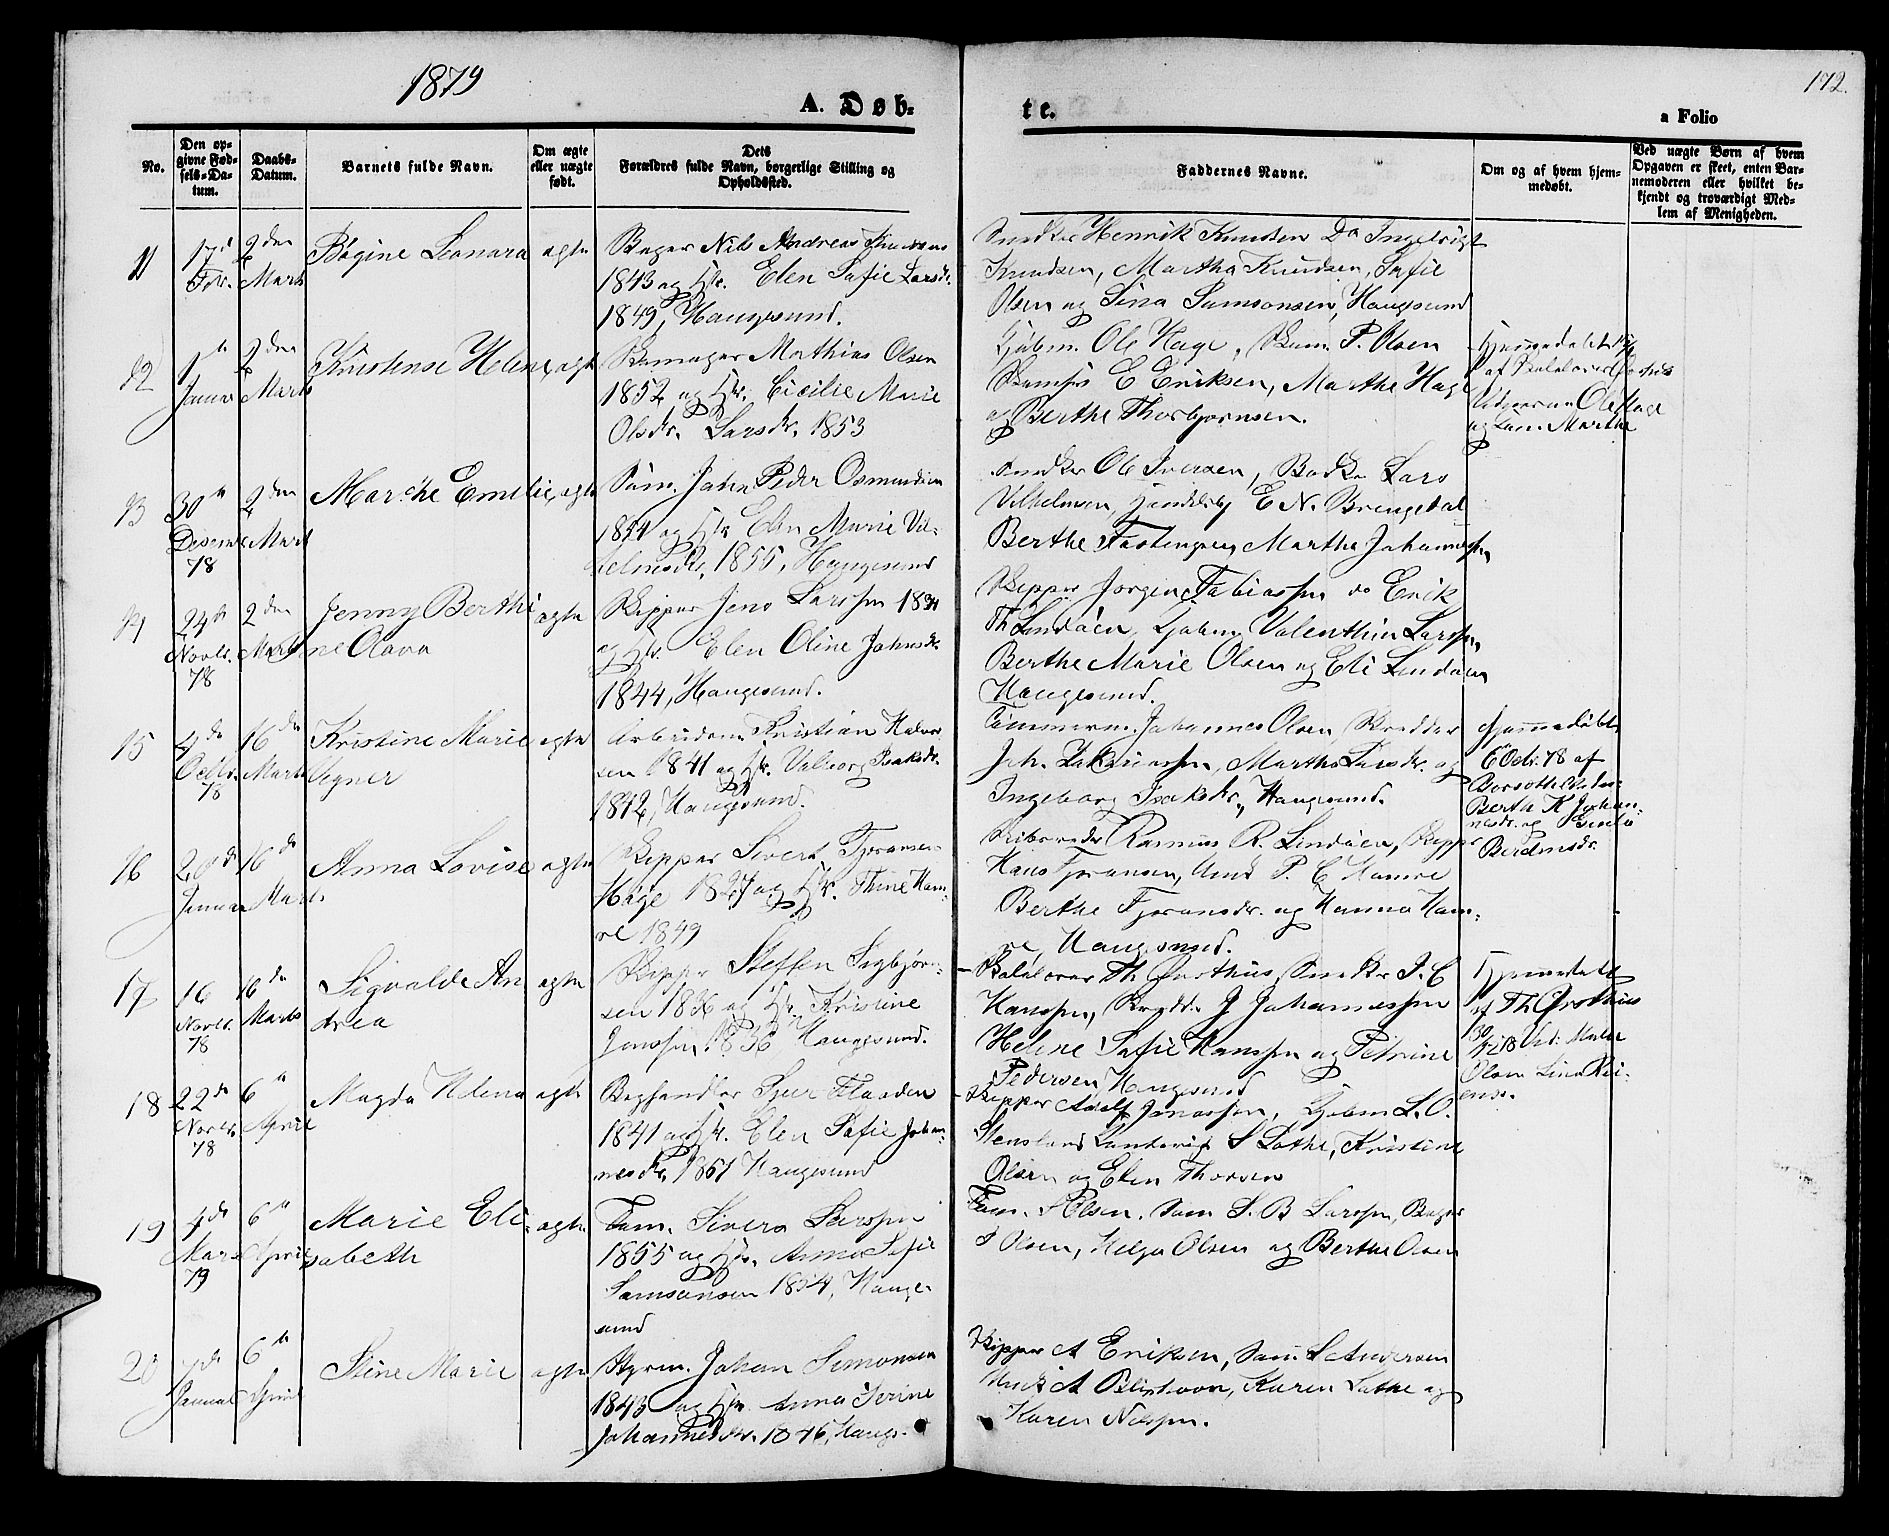 1879
172.
A. Døb-
te.
a Folio
No.
Den op-
givne Fød-
sels-Da-
tum.
Daabs-
Datum.
Barnets fulde Navn.
Om ægte
eller uægte
født.
Dets
Forældres fulde Navn, borgerlige Stilling og
Opholdssted.
Faddernes Navne.
Om og af hvem hjem-
medøbt.
Ved uægte Børn af hvem
Opgaven er skeet, enten Bar-
nemoderen eller hvilket be-
kjendt og troværdigt Med-
lem af Menigheden.
11
17d
Febr.
2den
Marts
Bøgine Leonara
agte
Bager Nils Andreas
1843 og Hu. Elen Safie Larsdr.
1849, Haugesund.
Snedker Henrik Knudsen Do Ingebrigt
Knudsen, Martha Knudsen, Safie
Olsen og Sina Samsonsen, Haugesund
12
1te
Januar
2den
Marts
Kristense Helene
agte
Mathias Olsen
1852 og Hu. Cicilie Marie
Olsdr. Larsdr. 1853
Kjøbm. Ole Hage, P. Olsen
E Eriksen, Marthe Hage
og Berthe Thorbjørnsen.
Hjemmedøbt
af
Ole Hage
og Marthe
13
30te
Desem
78
2den
Mart
Marthe Emelie
agte
Søm. Jahn Peder Osmundsen
1854 og Hu Elen Marie Vil-
helmsdr. 1855, Haugesund
Snedker Ole Iversen, Bødker Lars
Vilhelmsen, E. N. Brengedal
Berthe Martha Johannessen
14
24de
Novbr.
78
2den
Marts
Jenny Berthi
ne Olava
agte
Skipper Jens Larssen 1834
og Hu. Elen Oline Johnsdr
1844, Haugesund.
Skipper Jørgen Tabiassen do Erik
Th Lindøen, Kjøbm Valenthin Larssen,
Berthe Marie Olsen og Eli Lindøen
Haugesund.
15
4de
Octbr.
78
16de
Marts
Kristine Marie
Agner
agte
Arbeidsm. Kristian Halvor
sen 1841 og Hu. Valborg Isaksdr.
1842, Haugesund.
Tømmerm. Johannes Olsen,
Joh. Zakariassen, Martha Larsdr. og
Ingeborg Isaksdr., Haugesund.
Hjemmedøbt
6 Octr. 78 af
Berthe K Johan-
nesdr. og
Berentsdr.
16
20de
Januar
16de
Marts
Anna Lovise
agte
Skipper Sivert Tjøransen
Høge 1827 og Hu. Thine Ham-
re 1849
Rasmus R. Lindøen, Skipper
Hans Tjøransen, Unk P. C Hamre
Berthe Tjøransdr. og Hanna Ham-
re, Haugesund.
17
16
Novbr.
78
16de
Marts
Sigvalde An
drea
agte
Skipper Steffen Sigbjørn-
sen 1836 og Hu Kristine
Jonssen 1836 Haugesund.
Th. Grothius, Snedker J. C
Hanssen, J Johannessen
Helene Safie Hanssen og Petrine
Pedersen Haugesund
Hjemmedøbt
af Th Grothius
Vid: Maler
Olsen
18
22de
Novbr.
78
6te
April
Magda Helena
agte
Boghandler Sjur Flaaden
1841 og Hu. Elen Safie Johan-
nesdr. 1851 Haugesund
Skipper Adolf Jonassen, Kjøbm L. O.
Stensland S Lothe, Kristine
Olsen og Elen Thorsen
19
4de
Mars
79
6te
April
Marie Eli-
sabeth
agte
Tøm. Sivert Larssen
1855 og Hu. Anna Safie
Samsonsen 1854, Hauge-
sund
Tøm. S Olsen, Søm S. B Larssen, Bager
S Olsen, Helga Olsen og Berthe Olsen
20
7de
Januar
6te
April
Stine Marie
agte
Styrm. Johan Simonsen
1843 og Hu Anna Serine
Johannesdr. 1846, Haugs-
Skipper A Eriksen, Søm. S Andersen
Unk A Blixhavn, Karen Lothe og
Karen Nilssen.